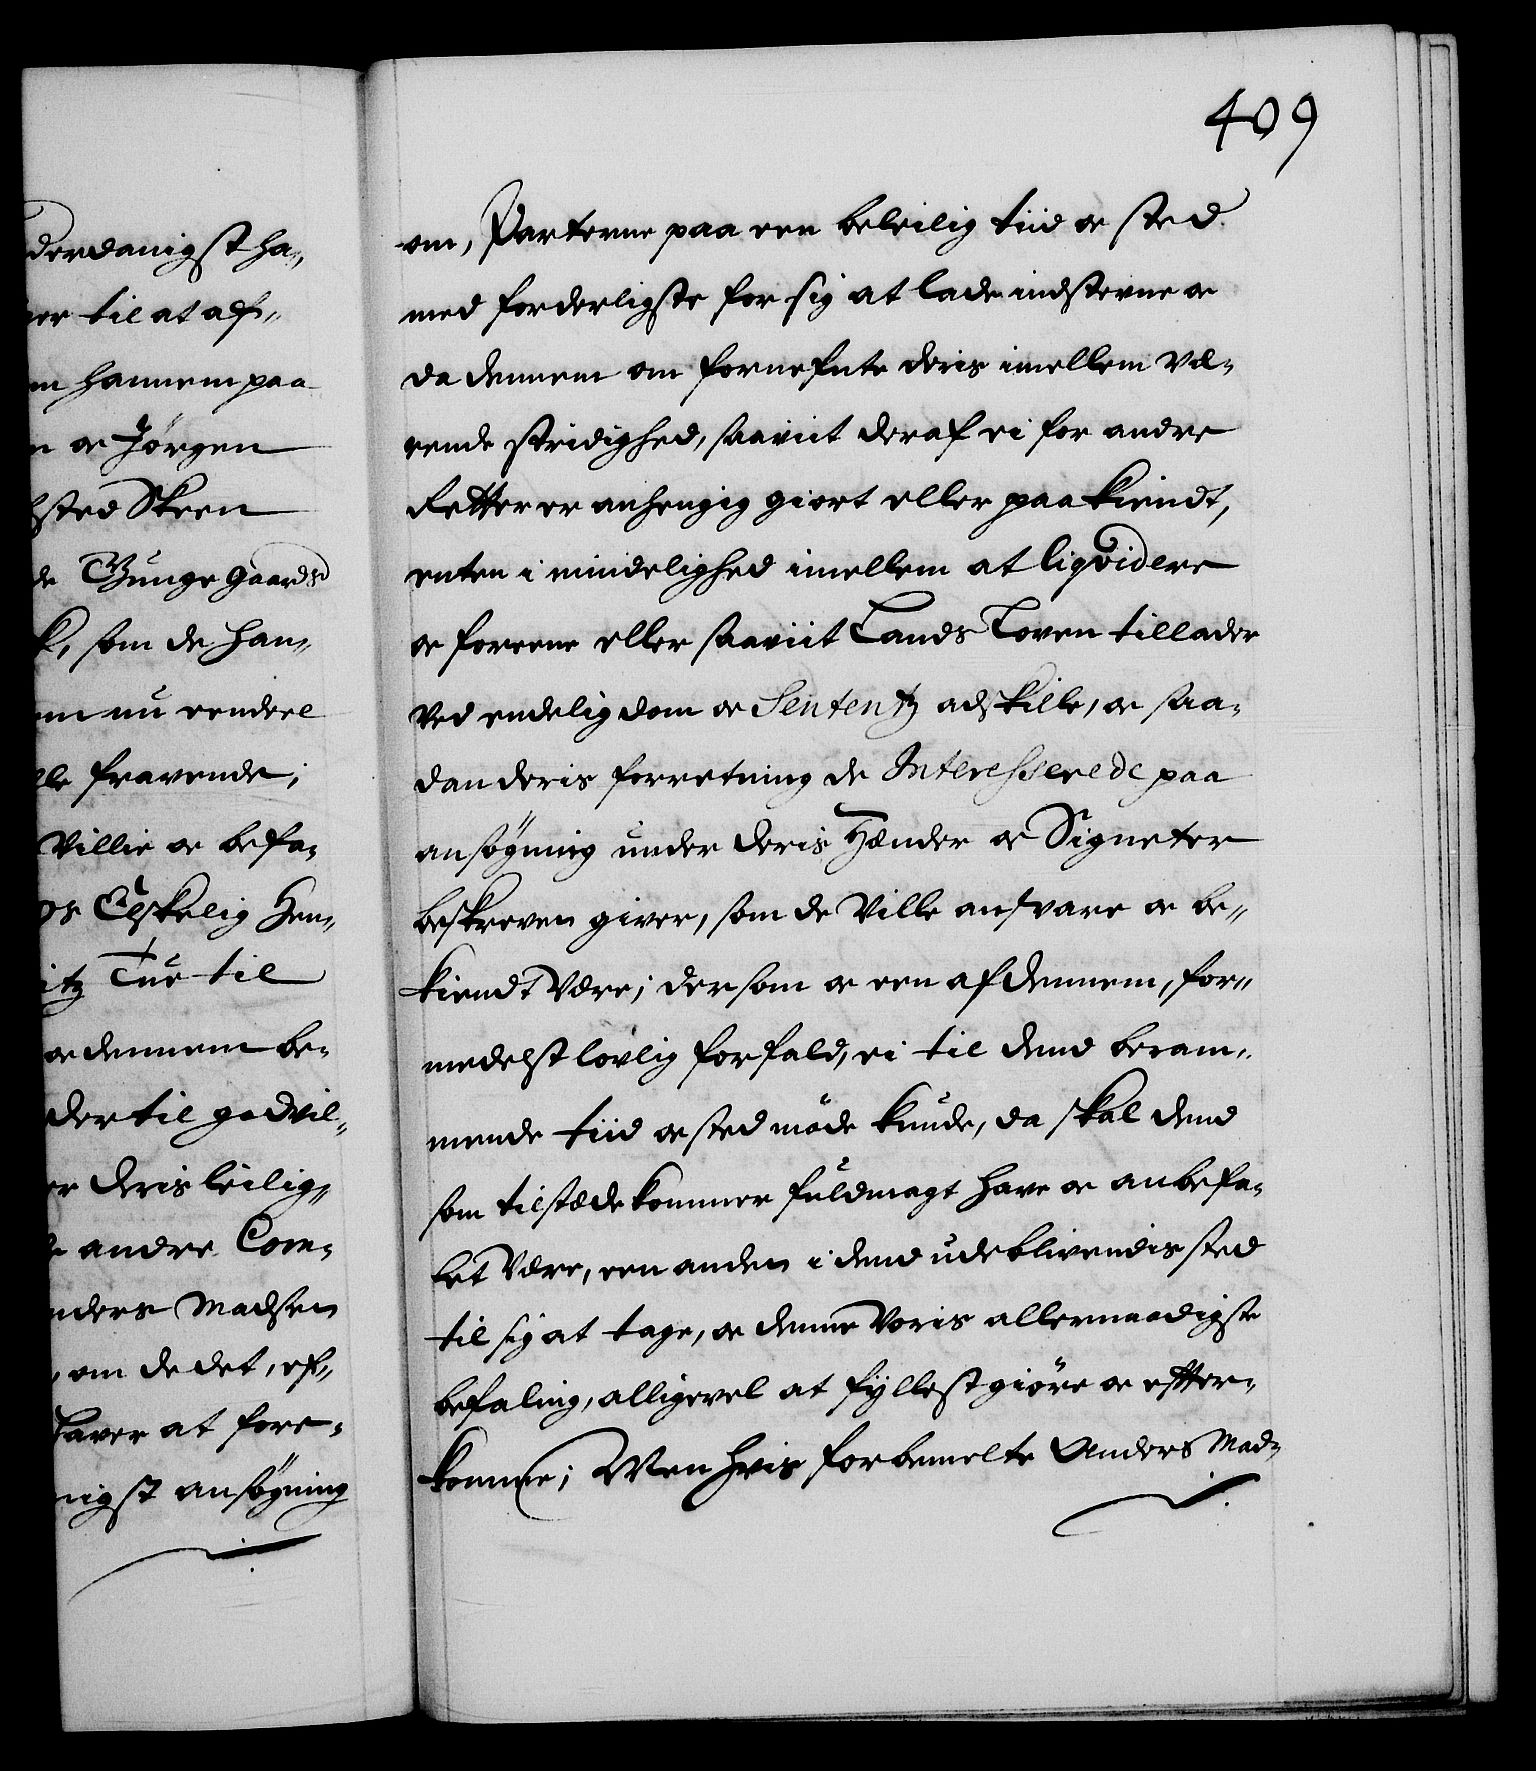 derdanigst ha-
er til at af-
m hannem paa
n oc Jørgen
sted Skeen
de Bunge gaards
k, som de han-
em nu eendeel
le fravende;
Villie oc befa-
os Elskelig Hen-
itz Tue til
oc dennem be-
der til godvil-
er deris leilig-
andre Com-
nders Madsen
, om de det, ef-
haver at fore-
nigst ansøgning
409
om, Parterne paa een beleilig tiid oc sted
med forderligste for sig at lade indsteyne oc
da dennem om fornefnte deris imellem væ-
rende stridighed, saavit deraf ei for andre
Retter er anhengig giort eller paakiendt,
enten i mindelighed imellem at liqvidere
oc foreene eller saaviit Lands Loven tillader
ved endelig dom oc Sententz adskille, oc saa-
dan deris forretning de Interesserede paa
ansøgning under deris Hænder oc Signeter
beskreven giver, som de ville ansvare oc be-
kiendt være; dersom oc een af dennem, for-
medelst lovlig forfald, ei til dend beram-
mende tiid oc sted møde kunde, da skal dend
som tilstæde kommer fuldmagt have oc anbefa-
let være, een anden i dend udeblivendis sted
til sig at tage, oc denne Voris allernaadigste
befaling, alligevel at fyllestgiøre oc efter-
komme; Men hvis forbemelte Anders Mad-